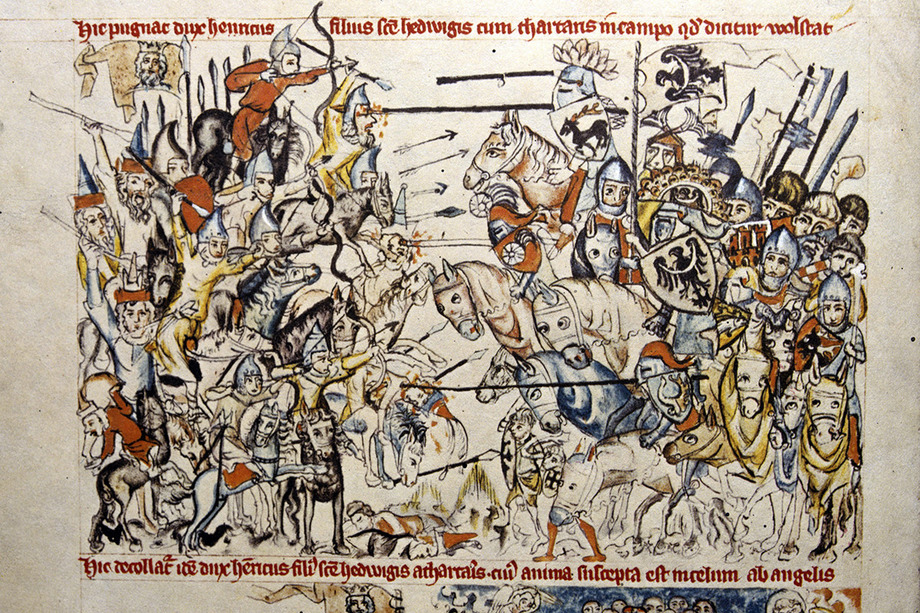 Hic pugnat dux henricus filius sce hedwigis cum thartaris in campo qd dicitur wolstat
Hic decollat ide dux henricus fili sce hedwigis a thartaris. cui anima suscepta est in celum ab angelis